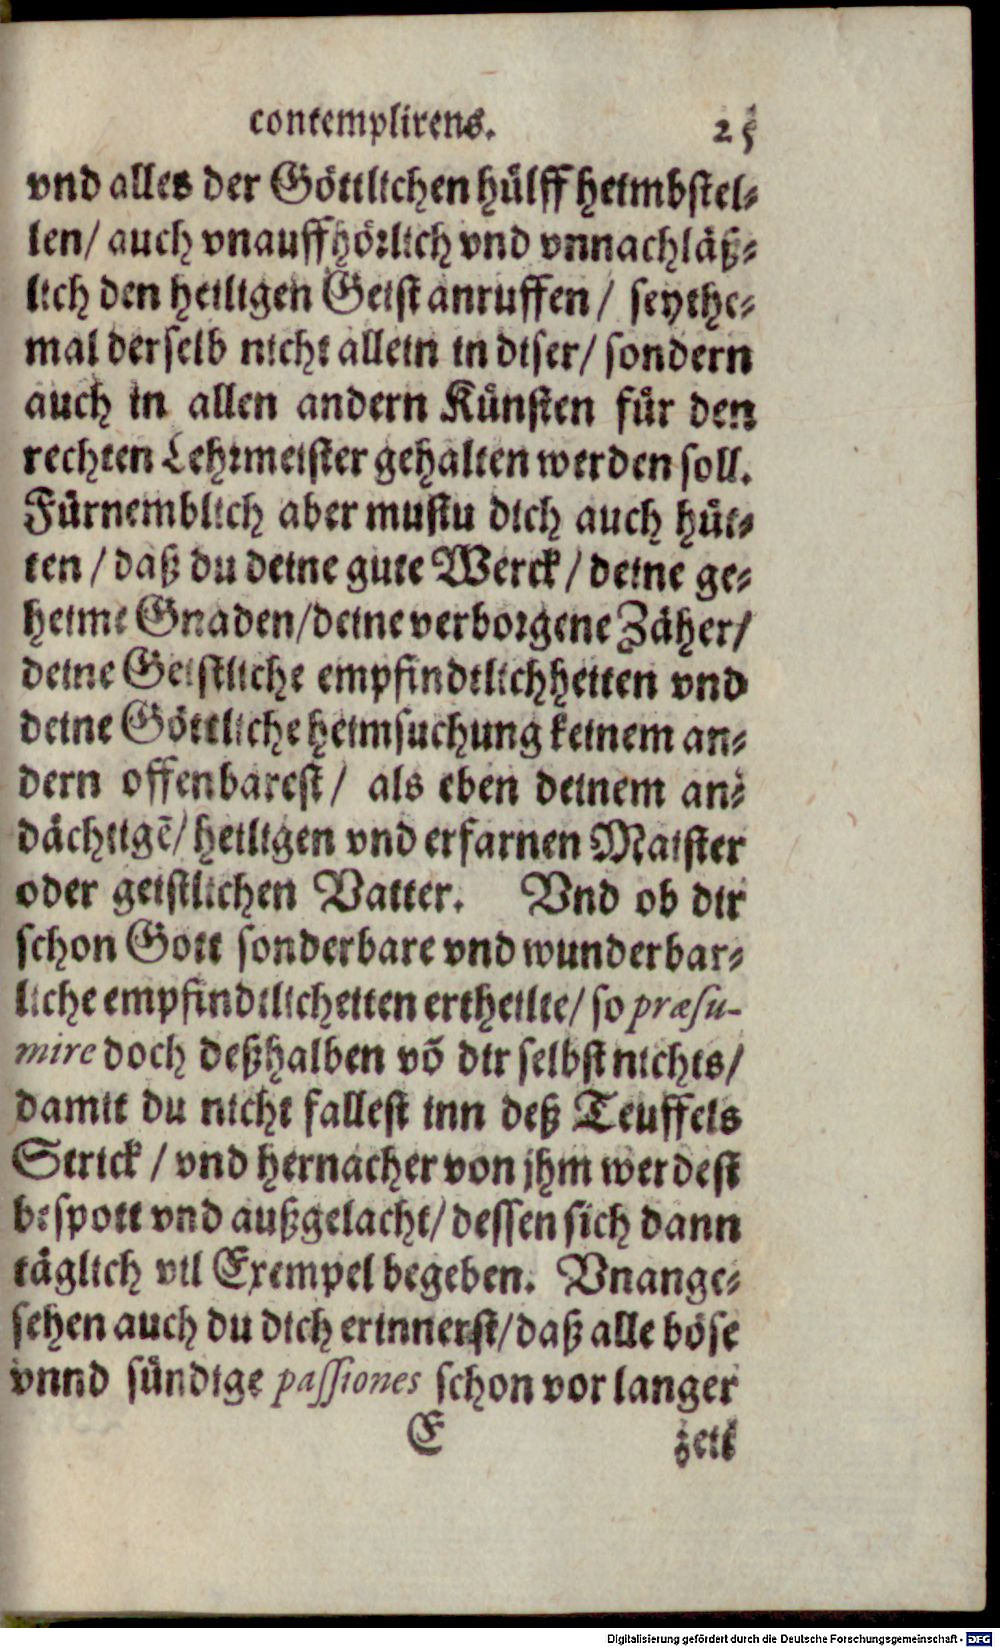 contemplirens. 25
vnd alles der Göttlichen hülff heimbstel-
len/ auch vnauffhörlich vnd vnnachläß-
lich den heiligen Geist anruffen/ seythe-
mal derselb nicht allein in diser/ sondern
auch in allen andern Künsten für den
rechten Lehrmeister gehalten werden soll.
Fürnemblich aber mustu dich auch hüt-
ten / daß du deine gute Werck / deine ge-
heime Gnaden/deine verborgene Zäher/
deine Geistliche empfindtlichheiten vnd
deine Göttliche heimsuchung keinem an-
dern offenbarest/ als eben deinem an-
dächtigẽ/ heiligen vnd erfarnen Maister
oder geistlichen Vatter. Vnd ob dir
schon Gott sonderbare vnd wunderbar-
liche empfindtlicheiten ertheilte/ so præsu-
mire doch deßhalben võ dir selbst nichts/
damit du nicht fallest inn deß Teuffels
Strick / vnd hernacher von jhm werdest
bespott vnd außgelacht/ dessen sich dann
täglich vil Exempel begeben. Vnange-
sehen auch du dich erinnerst/ daß alle böse
vnnd sündige passiones schon vor langer
E zeit
Digitalisierung gefördert durch die Deutsche Forschungsgemeinschaft - DFG